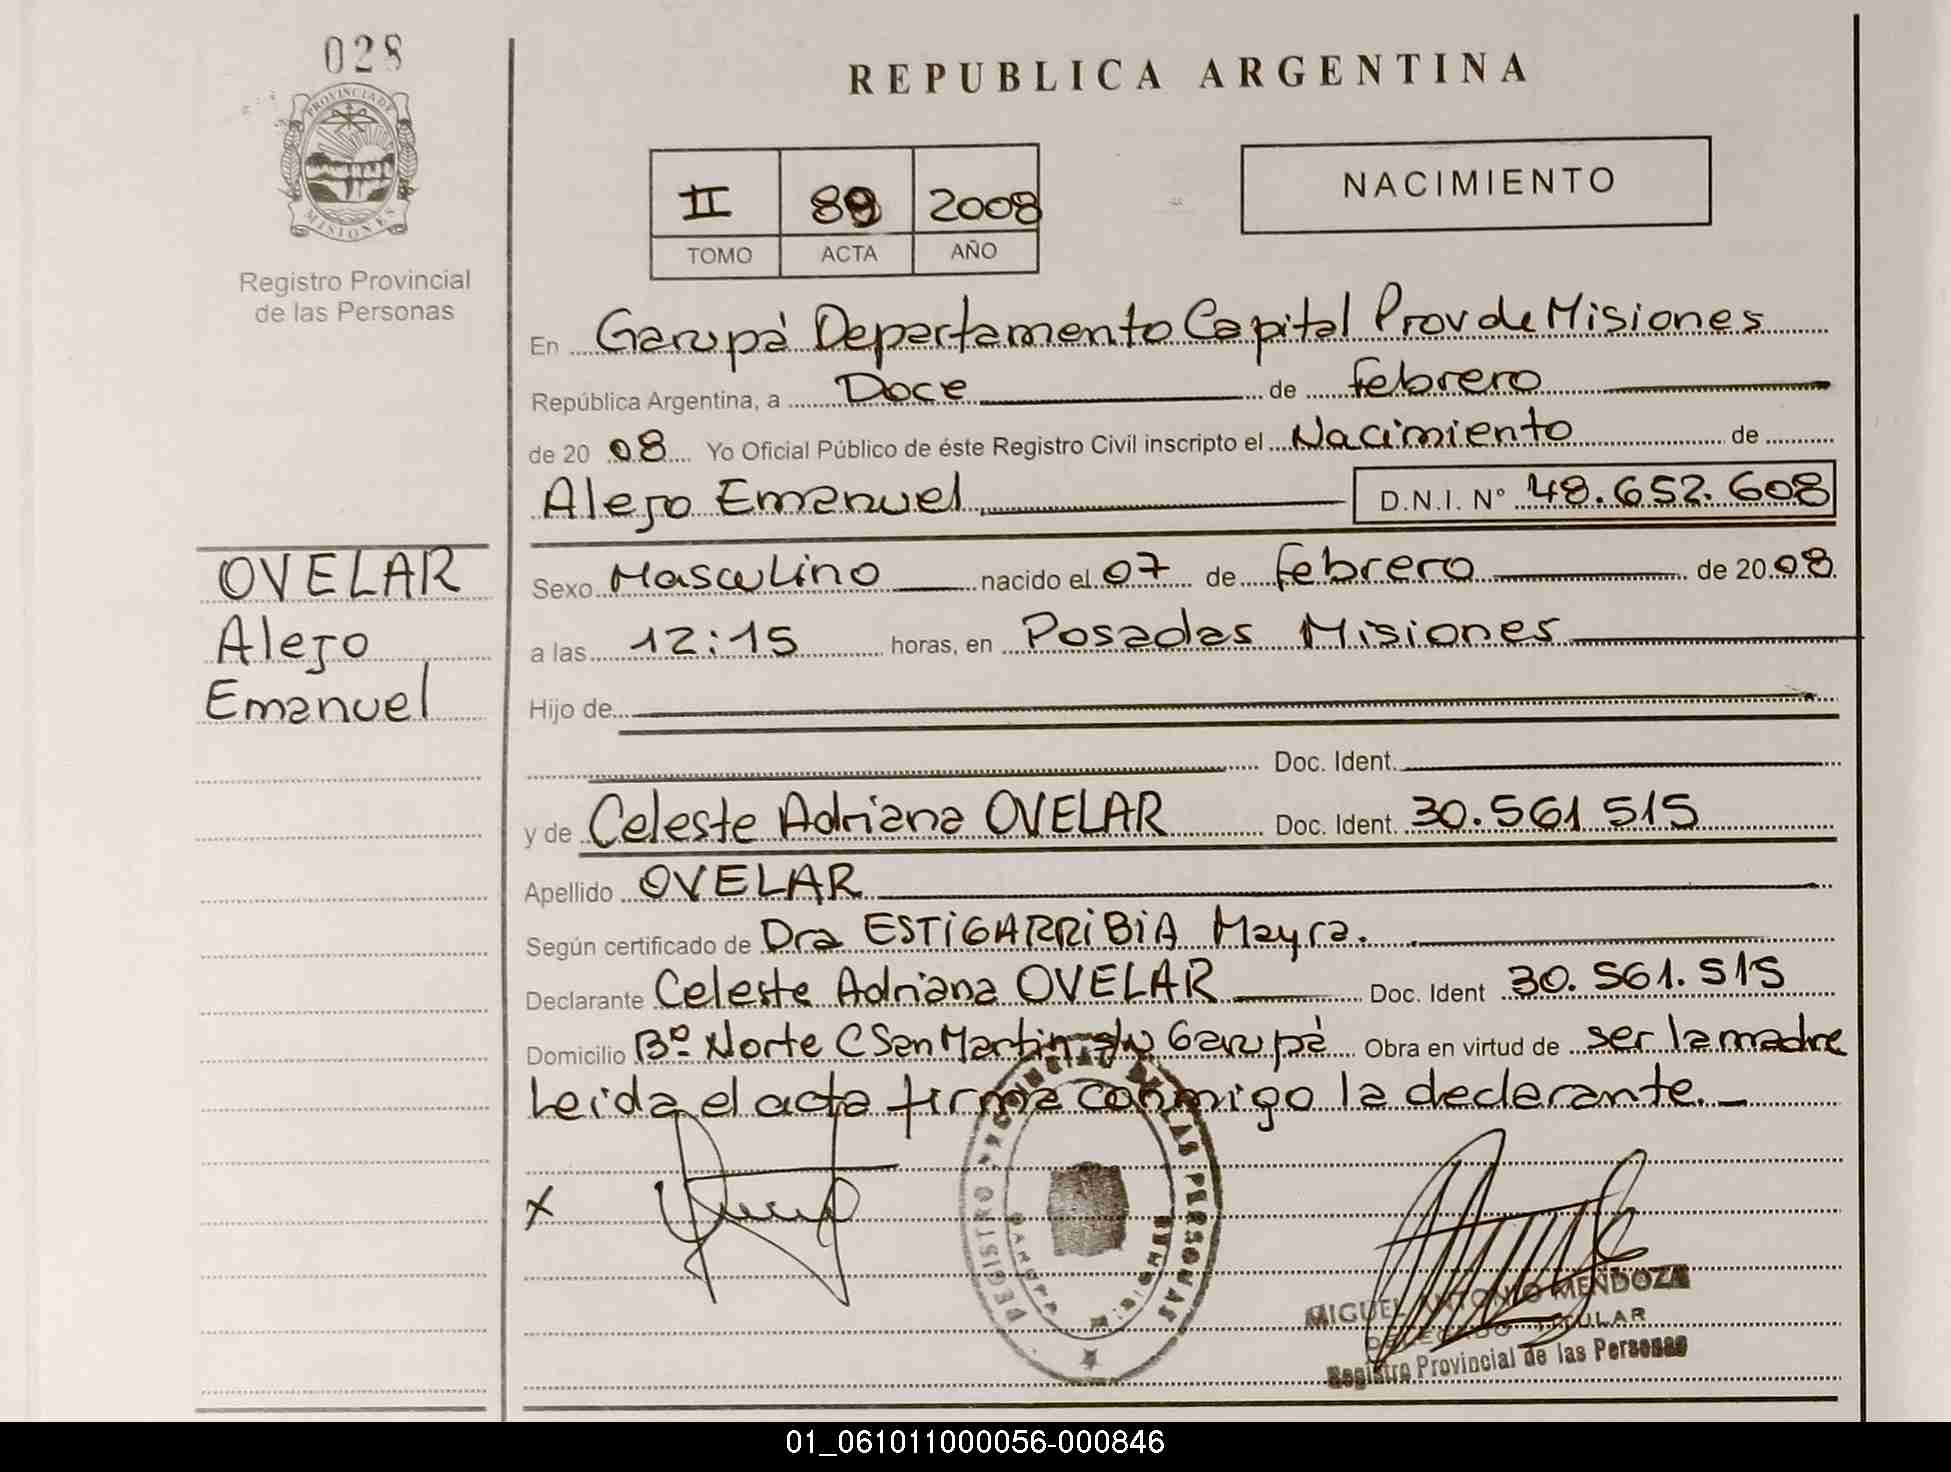 028
PROVINCIA DE
MISIONES
Registro Provincial
de las Personas
OVELAR
Alejo
Emanuel
REPUBLICA ARGENTINA
II 89 2008
TOMO ACTA AÑO
NACIMIENTO
En Garupá Departamento Capital Prov de Misiones
República Argentina, a Doce de febrero
de 20 08 Yo Oficial Público de éste Registro Civil inscripto el Nacimiento de
Alejo Emanuel D.N.I. N° 48.652.608
Sexo Masculino nacido el 07 de febrero de 20 08
a las 12:15 horas, en Posadas Misiones
Hijo de
Doc. Ident.
y de Celeste Adriana OVELAR Doc. Ident. 30.561 515
Apellido OVELAR
Según certificado de Dra ESTIGARRIBIA Mayra.
Declarante Celeste Adriana OVELAR Doc. Ident 30.561.515
Domicilio Bº Norte C San Martin Garupá Obra en virtud de ser la madre
Leida el acta firma conmigo la declarante.
X
REGISTRO PROVINCIAL DE LAS PERSONAS
GARUPA
MIGUEL ANTONIO MENDOZA
DELEGADO TITULAR
Registro Provincial de las Personas
01_061011000056-000846